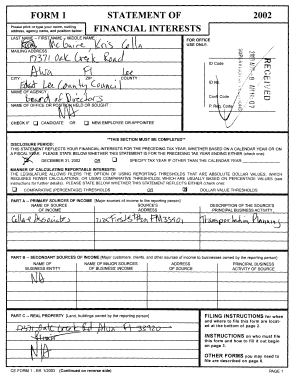 FORM 1 STATEMENT OF 2002
FINANCIAL INTERESTS
Please print or type your name, mailing
address, agency name, and position below:
LAST NAME -- FIRST NAME -- MIDDLE NAME:
McGuire, Kris Cella
MAILING ADDRESS:
17371 Oak Creek Road
Alva Fl Lee
CITY: ZIP: COUNTY:
Lee County Council
NAME OF AGENCY:
Board of Directors
NAME OF OFFICE OR POSITION HELD OR SOUGHT:
NA
CHECK IF CANDIDATE OR NEW EMPLOYEE OR APPOINTEE
FOR OFFICE
USE ONLY:
ID Code
ID No.
Conf. Code
P. Req. Code
RECEIVED
**THIS SECTION MUST BE COMPLETED**
DISCLOSURE PERIOD:
THIS STATEMENT REFLECTS YOUR FINANCIAL INTERESTS FOR THE PRECEDING TAX YEAR, WHETHER BASED ON A CALENDAR YEAR OR ON
A FISCAL YEAR. PLEASE STATE BELOW WHETHER THIS STATEMENT IS FOR THE PRECEDING TAX YEAR ENDING EITHER (check one):
DECEMBER 31, 2002 OR SPECIFY TAX YEAR IF OTHER THAN THE CALENDAR YEAR:
MANNER OF CALCULATING REPORTABLE INTERESTS:
THE LEGISLATURE ALLOWS FILERS THE OPTION OF USING REPORTING THRESHOLDS THAT ARE ABSOLUTE DOLLAR VALUES, WHICH
REQUIRES FEWER CALCULATIONS, OR USING COMPARATIVE THRESHOLDS, WHICH ARE USUALLY BASED ON PERCENTAGE VALUES (see
instructions for further details). PLEASE STATE BELOW WHETHER THIS STATEMENT REFLECTS EITHER (check one):
COMPARATIVE (PERCENTAGE) THRESHOLDS OR DOLLAR VALUE THRESHOLDS
PART A -- PRIMARY SOURCES OF INCOME [Major sources of income to the reporting person]
NAME OF SOURCE OF INCOME
SOURCE'S ADDRESS
DESCRIPTION OF THE SOURCE'S PRINCIPAL BUSINESS ACTIVITY
Cella & Associates
Transportation Planning
PART B -- SECONDARY SOURCES OF INCOME [Major customers, clients, and other sources of income to businesses owned by the reporting person]
NAME OF BUSINESS ENTITY
NAME OF MAJOR SOURCES OF BUSINESS' INCOME
ADDRESS OF SOURCE
PRINCIPAL BUSINESS ACTIVITY OF SOURCE
NA
PART C -- REAL PROPERTY [Land, buildings owned by the reporting person]
17371 Oak Creek Rd Alva Fl 33920
NA
FILING INSTRUCTIONS for when
and where to file this form are located
at the bottom of page 2.
INSTRUCTIONS on who must file
this form and how to fill it out begin
on page 3.
OTHER FORMS you may need to
file are described on page 6.
CE FORM 1 - Eff. 1/2003 (Continued on reverse side) PAGE 1